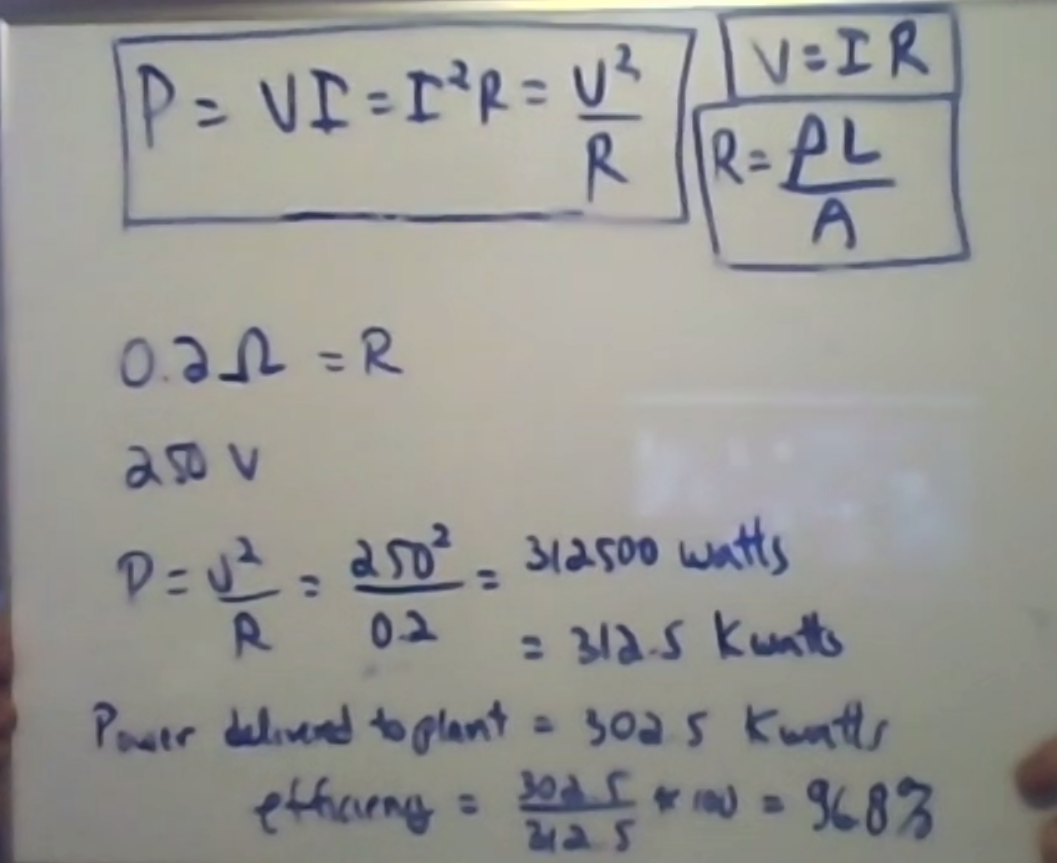 P = VI = I²R = V²/R
V = IR
R = ρL/A
0.2Ω = R
250 V
P = V²/R = 250²/0.2 = 312500 watts
= 312.5 Kwatts
Power delivered to plant = 302.5 Kwatts
efficieny = 302.5/312.5 * 100 = 96.8%